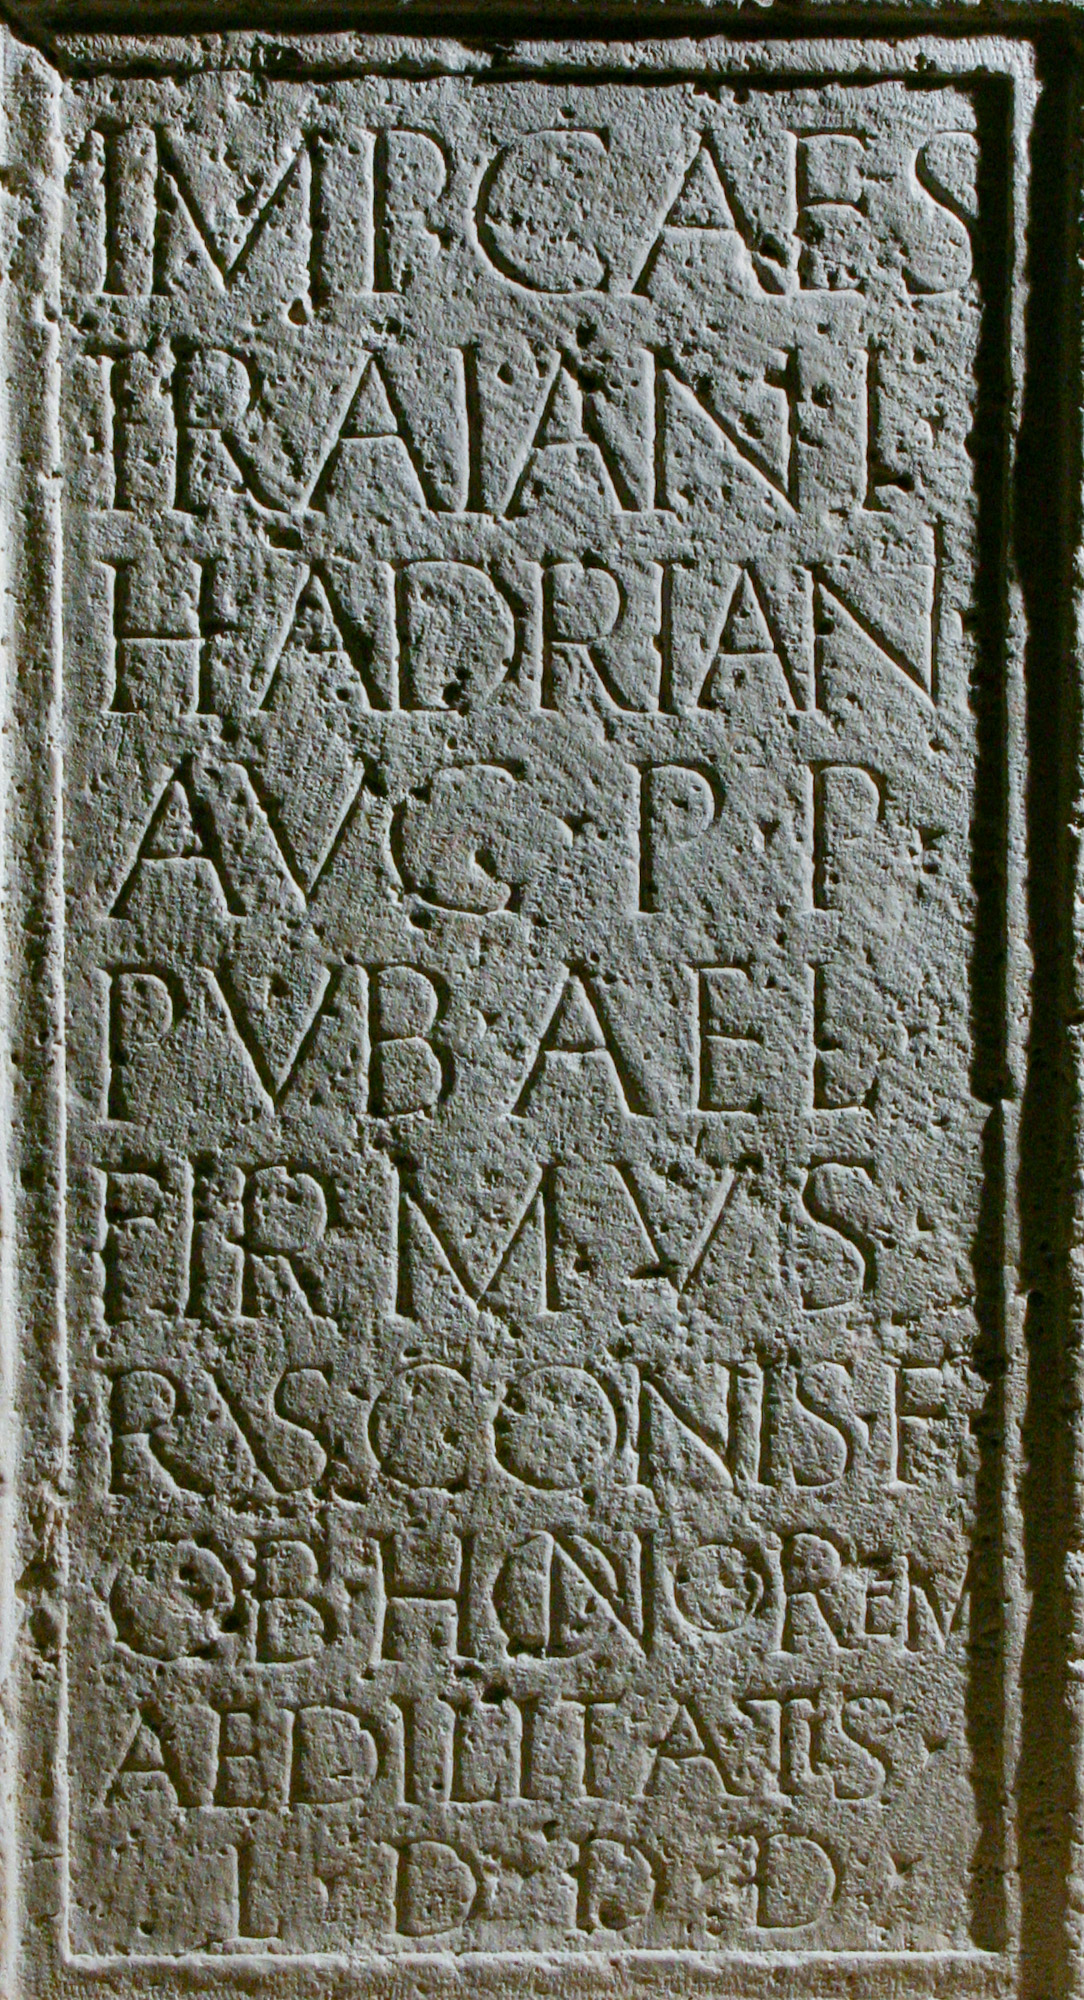 IMP CAES
TRAIAN·L
HADRIAN
AVG P·P·
PVB·AEL
FIRMVS·
RVSCONIS·F
OB·HONOREM
AEDILITATIS·
L·D·D·D·